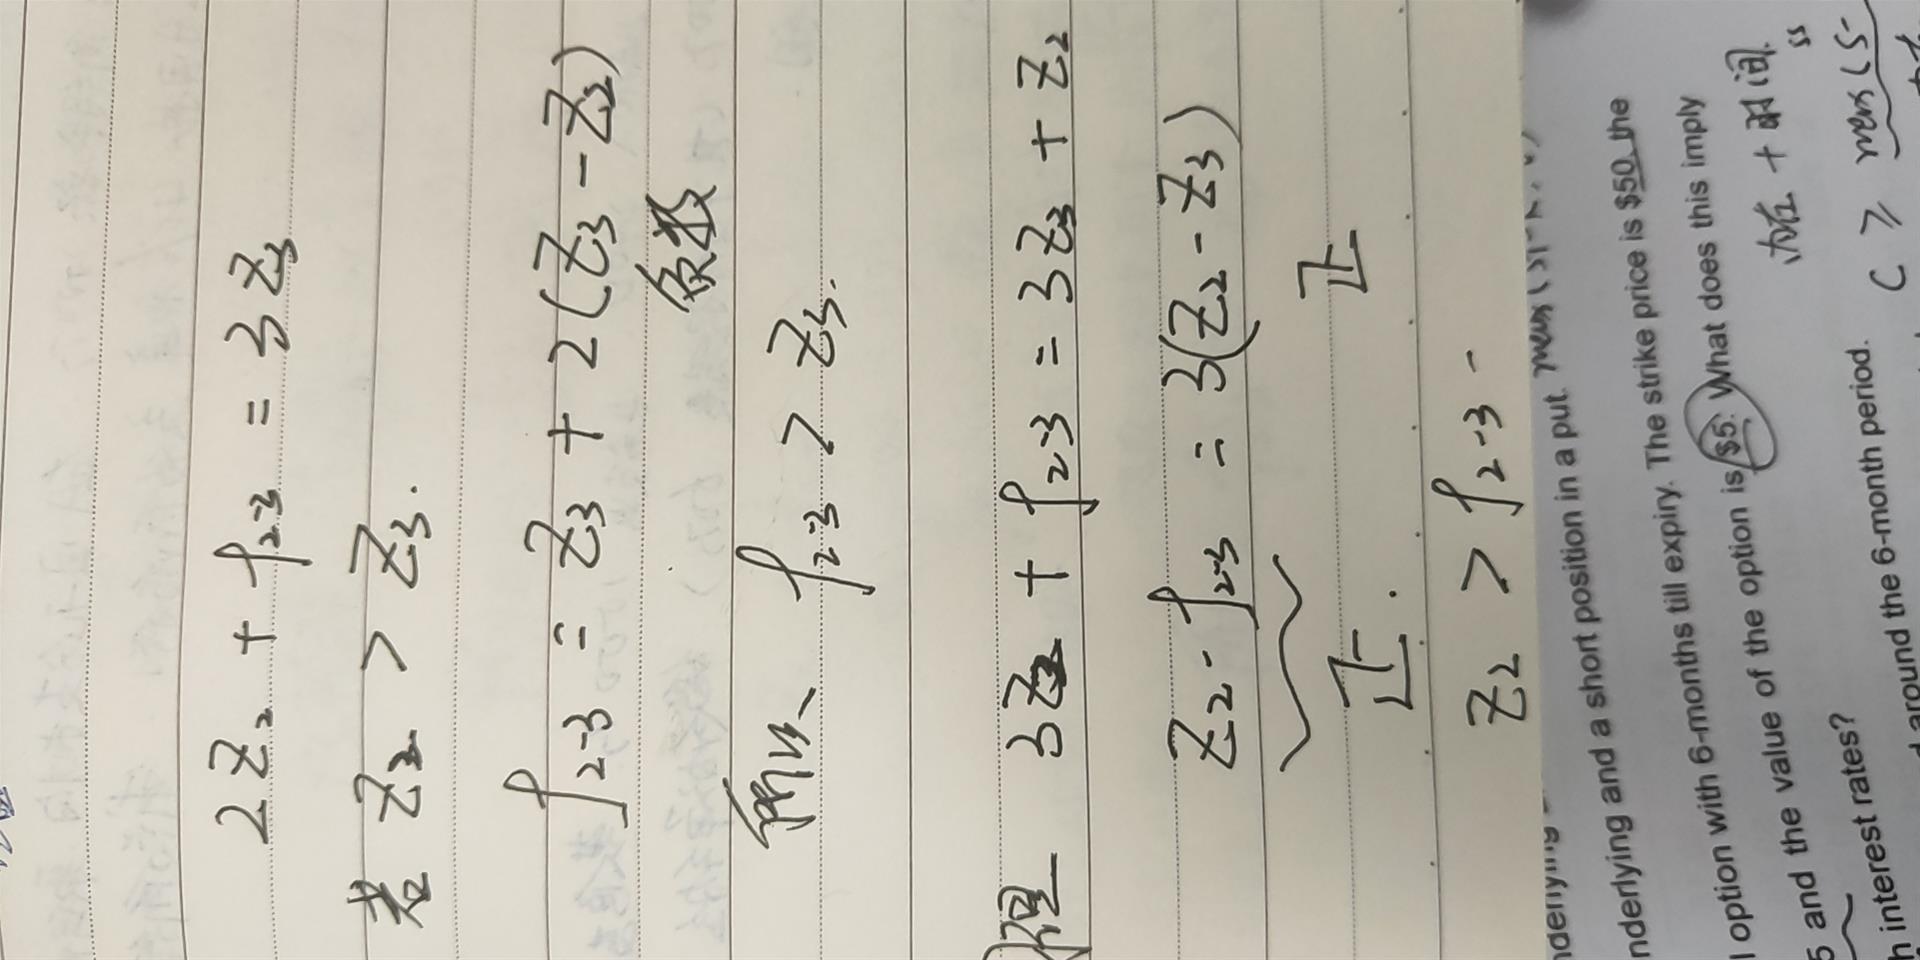 2Z₂ + f₂₋₃ = 3Z₃
若 Z₂ > Z₃.
f₂₋₃ = Z₃ + 2(Z₃ - Z₂)
负数
所以 f₂₋₃ > Z₃.
但 3Z₂ + f₂₋₃ = 3Z₃ + Z₂
Z₂ - f₂₋₃ = 3(Z₂ - Z₃)
正. 正
Z₂ > f₂₋₃ -
nderlying and a short position in a put.
option with 6-months till expiry. The strike price is $50, the
5 and the value of the option is $5. What does this imply
内在 + 时间.
h interest rates?
C ≥ max(S-
around the 6-month period.